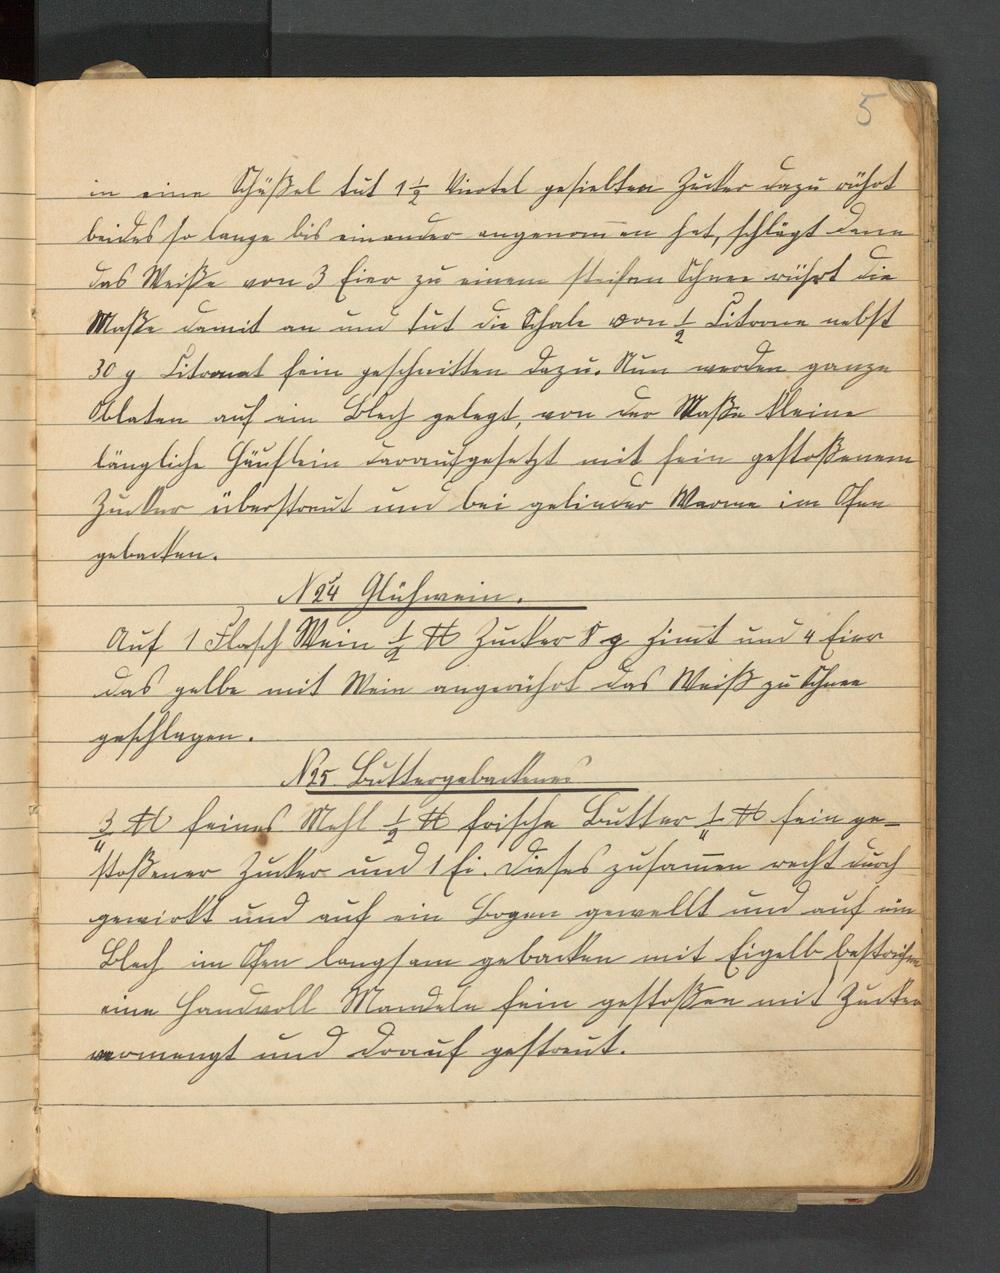 5
in eine Schüßel tut 1 1/2 Viertel gesiebten Zucker dazu rührt
beides so lange bis einander angenommen hat, schlägt dann
das Weiße von 3 Eier zu einem steifen Schnee rührt die
Maße damit an und tut die Schale von 1/2 Citrone nebst
30 g Citronat fein geschnitten dazu. Nun werden ganze
Oblaten auf ein Blech gelegt, von der Maße kleine
längliche Häuflein daraufgesetzt mit fein gestoßenem
Zucker überstreut und bei gelinder Warme im Ofen
gebacken.
N 24 Glühwein.
Auf 1 Flasch Wein 1/2 ℔ Zucker 8 g Zimt und 4 Eier
das gelbe mit Wein angerührt das Weiß zu Schnee
geschlagen.
N 25. Buttergebackenes
3/4 ℔ feines Mehl 1/2 ℔ frische Butter 1/4 ℔ fein ge-
stoßener Zucker und 1 Ei. Dieses zusam̅en recht durch
gewirkt und auf ein Bogen gewellt und auf ein
Blech im Ofen langsam gebacken mit Eigelb bestrichen
eine Handvoll Mandeln fein gestoßen mit Zucker
vermengt und drauf gestreut.